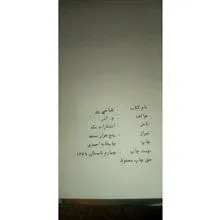 نام کتاب :
مؤلف : م. آذر
ناشر : انتشارات مکه
تیراژ : پنج هزار نسخه
چاپ : چاپخانه احمدی
نوبت چاپ : چهارم تابستان ۱۳۶۹
حق چاپ محفوظ